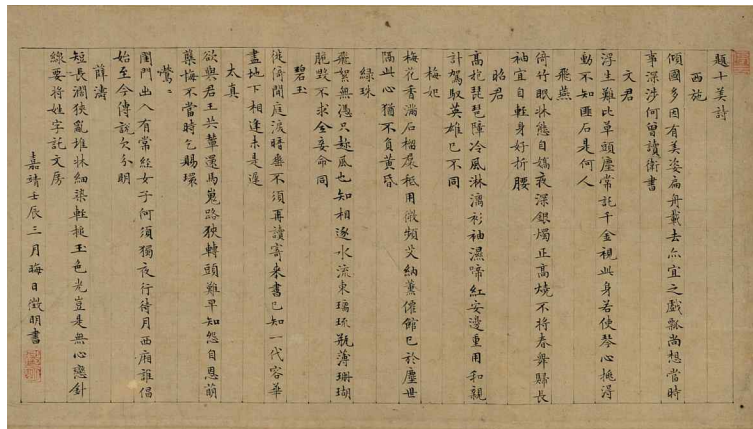 題十美詩
西施
傾國多因有美姿扁舟載去亦宜之戲瓢尚想當時
事深涉何曾讀衛書
文君
浮生難比草頭塵常託千金視此身若使琴心挑得
動不知匪石是何人
飛燕
倚竹眠牀態自嬌夜深銀燭正高燒不將春舞歸長
袖宜自輕身好折腰
昭君
高抱琵琶障冷風淋漓衫袖濕啼紅安邊重用和親
計駕馭英雄已不同
梅妃
梅花香滿石榴羣秪用微頻艾納薰僊館已於塵世
隔此心猶不負黃昏
綠珠
飛絮無憑只趁風也知相逐水流東璚琉瓶薄珊瑚
脆毀不求全妾命同
碧玉
徙倚閒庭淚暗垂不須再讀寄來書已知一代容華
盡地下相逢未是遲
太真
欲與君王共輦還馬嵬路狹轉頭難早知怨自恩萌
蘗悔不當時乞賜環
鶯鶯
閨門出入有常經女子何須獨夜行待月西廂誰倡
始至今傳說欠分明
薛濤
短長濶狹亂堆牀細染輕搥玉色光豈是無心戀針
線要將姓字託文房
嘉靖壬辰三月晦日徵明書